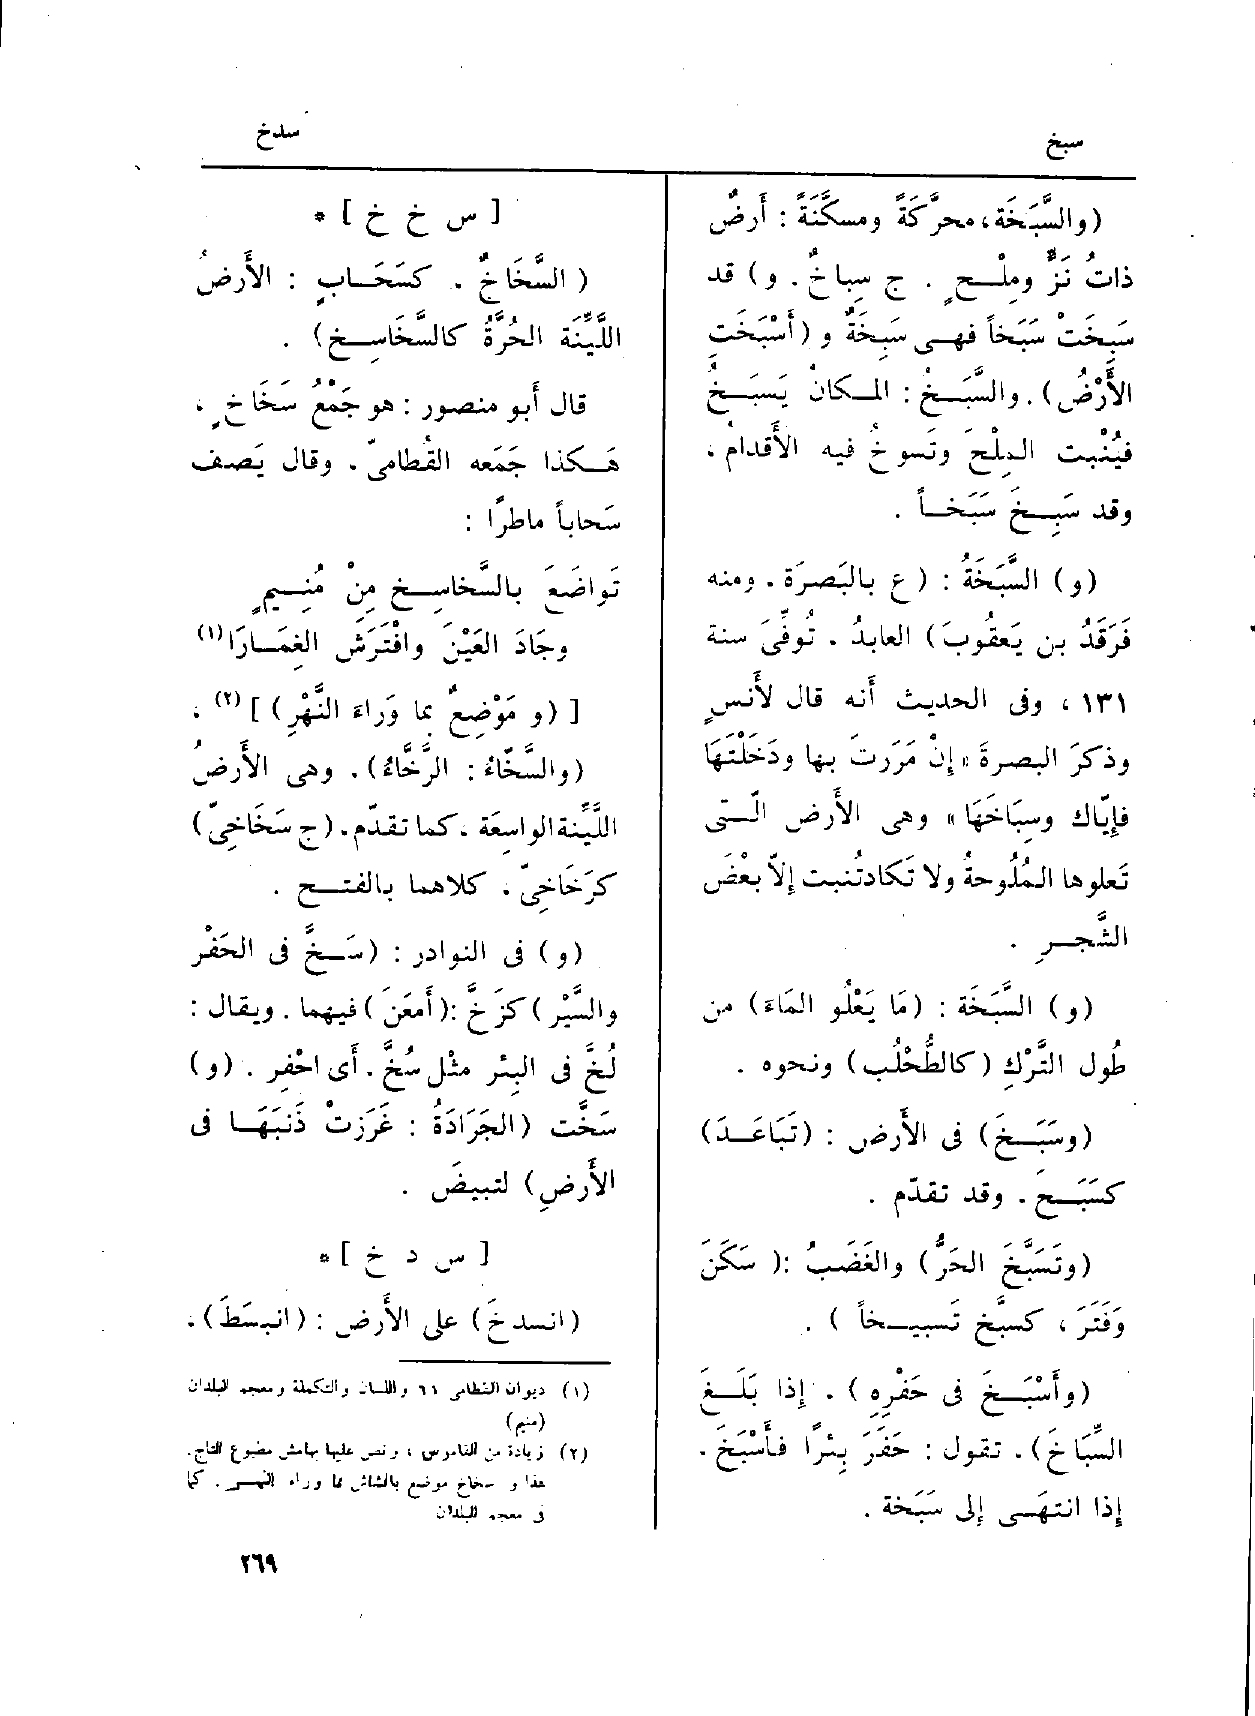 سبخ
سدخ
(والسَّبَخَة، محرَّكَةً ومسكَّنَةً : أَرضٌ
ذاتُ نَزٍّ ومِلْـحٍ . ج سِباخٌ . و) قد
سَبِخَتْ سَبَخاً فهـى سَبِخَةٌ و (أَسْبَخَتِ
الأَرْضُ) . والسَّبَـخُ : المـكانُ يَسبَـخُ
فيُنْبِت المِلْحَ وتَسوخُ فيه الأَقدامُ ،
وقد سَبِـخَ سَبَخـاً .
(و) السَّبَخَةُ : (ع بالبَصرَة . ومنه
فَرقَدُ بن يَعقُوبَ) العابدُ . تُوفِّىَ سنة
١٣١ ، وفى الحديث أَنه قال لأَنسٍ
وذكرَ البصرةَ «إِنْ مَرَرتَ بها ودَخَلْتَهَا
فإِيّاك وسِبَاخَهَا» وهى الأَرض الّـتى
تَعلوها المُلُوحةُ ولا تَكادتُنبت إِلاّ بعْضَ
الشَّجـرِ .
(و) السَّبَخَة : (مَا يَعْلُو المَاءَ) من
طُول التَّرْكِ (كالطُّحْلُب) ونحوه .
(وسَبَـخَ) فى الأَرض : (تَبَاعَـدَ)
كسَبَـحَ . وقد تقدّم .
(وتَسَبَّخَ الحَرُّ) والغَضَبُ :( سَكَنَ
وَفَتَرَ ، كسبَّخ تَسبيـخاً ) .
(وأَسْبَـخَ فى حَفْرِهِ ) . إذا بَلَـغَ
السِّبَاخَ) . تقول : حَفَرَ بِئرًا فأَسْبَخَ .
إذا انتهَـى إلى سَبَخة .
[ س خ خ ] *
( السَّخَاخُ . كسَحَـابٍ : الأَرضُ
اللَّيِّنَة الحُرَّةُ كالسَّخَاسِـخ) .
قال أَبو منصور : هو جَمْعُ سَخَاخٍ ،
هَـكذا جَمَعه القُطامىّ . وقال يَصف
سَحاباً ماطرًا :
تَواضَعَ بالسَّخاسِـخِ مِنْ مُنِـيمٍ
وجَادَ العَيْنَ وافْتَرَشَ الغِمَـارَا(١)
[ (و مَوْضِعٌ بما وَراءَ النَّهْرِ) ] (٢) .
(والسَّخَّاءُ : الرَّخَّاءُ) . وهى الأَرضُ
اللَّيِّنة الواسِعَة . كما تقدّم . (ج سَخَاخِىّ)
كرَخَاخِىّ . كلاهما بالفتـح .
(و) فى النوادر : (سَـخَّ فى الحَفْرِ
والسَّيْرِ) كزَخَّ :(أَمعَنَ) فيهما . ويقال :
لُخَّ فى البِئر مثْل سُخَّ . أَى احْفِر . (و)
سَخَّت (الجَرَادَةُ : غَرَزتْ ذَنَبَهَـا فى
الأَرضِ) لتبيضَ .
[ س د خ ] *
(انسدخَ) على الأَرض : (انبسَطَ) .
(١) ديوان القطامى ٦١ واللسان والتكملة ومعجم البلدان
(منيم)
(٢) زيادة من القاموس ، ونص عليها بهامش مطبوع التاج.
هذا و سخاخ موضع بالشاش مما وراء النهـر . كما
فى معجم البلدان
٢٦٩